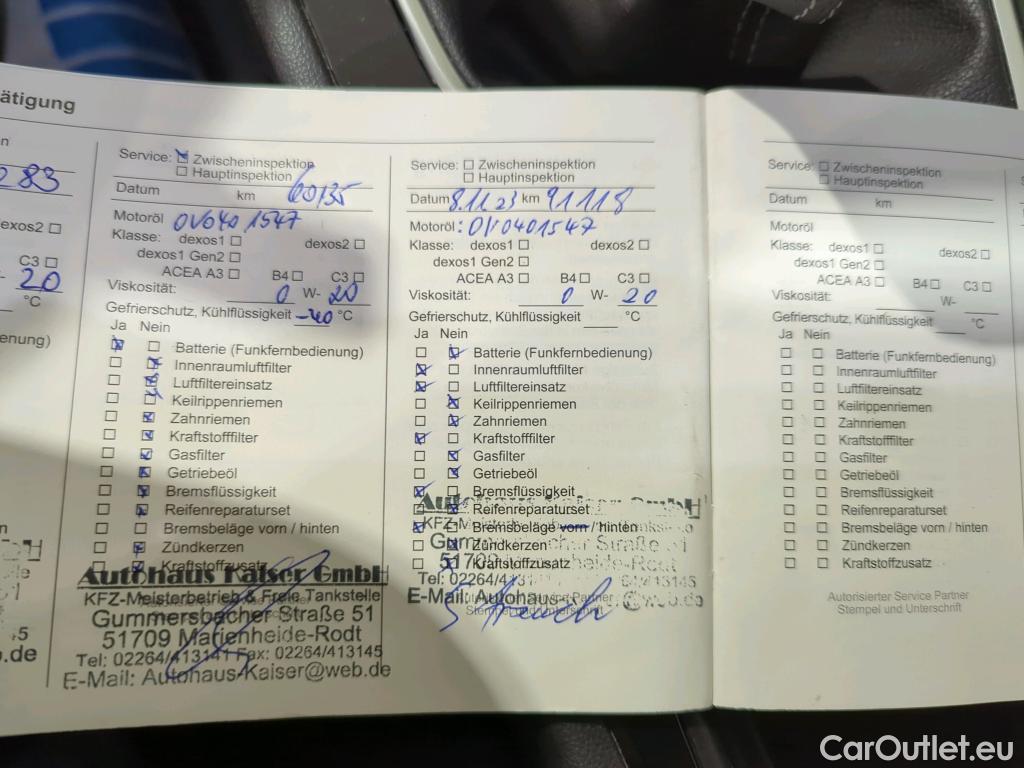 ätigung
283
exos2
C3
20
°C
enung)
5
b.de
Service: Zwischeninspektion
Hauptinspektion
Datum km 60135
Motoröl OV0401547
Klasse: dexos1 dexos2
dexos1 Gen2
ACEA A3 B4 C3
Viskosität: 0 W- 20
Gefrierschutz, Kühlflüssigkeit -40 °C
Ja Nein
Batterie (Funkfernbedienung)
Innenraumluftfilter
Luftfiltereinsatz
Keilrippenriemen
Zahnriemen
Kraftstofffilter
Gasfilter
Getriebeöl
Bremsflüssigkeit
Reifenreparaturset
Bremsbeläge vorn / hinten
Zündkerzen
Kraftstoffzusatz
Autohaus Kaiser GmbH
KFZ-Meisterbetrieb & Freie Tankstelle
Gummersbacher Straße 51
51709 Marienheide-Rodt
Tel: 02264/413141 Fax: 02264/413145
E-Mail: Autohaus-Kaiser@web.de
Service: Zwischeninspektion
Hauptinspektion
Datum 8.11.23 km 91118
Motoröl: OV0401547
Klasse: dexos1 dexos2
dexos1 Gen2
ACEA A3 B4 C3
Viskosität: 0 W- 20
Gefrierschutz, Kühlflüssigkeit °C
Ja Nein
Batterie (Funkfernbedienung)
Innenraumluftfilter
Luftfiltereinsatz
Keilrippenriemen
Zahnriemen
Kraftstofffilter
Gasfilter
Getriebeöl
Bremsflüssigkeit
Autohaus Kaiser GmbH
Reifenreparaturset
KFZ-Meisterbetrieb
Bremsbeläge vorn / hinten
Gummersbacher Straße 51
Zündkerzen
51709 Marienheide-Rodt
Kraftstoffzusatz
Tel: 02264/413145
E-Mail: Autohaus- @web.de
Stempel und Unterschrift
Service: Zwischeninspektion
Hauptinspektion
Datum km
Motoröl
Klasse: dexos1 dexos2
dexos1 Gen2
ACEA A3 B4 C3
Viskosität: W-
Gefrierschutz, Kühlflüssigkeit °C
Ja Nein
Batterie (Funkfernbedienung)
Innenraumluftfilter
Luftfiltereinsatz
Keilrippenriemen
Zahnriemen
Kraftstofffilter
Gasfilter
Getriebeöl
Bremsflüssigkeit
Reifenreparaturset
Bremsbeläge vorn / hinten
Zündkerzen
Kraftstoffzusatz
Autorisierter Service Partner
Stempel und Unterschrift
CarOutlet.eu